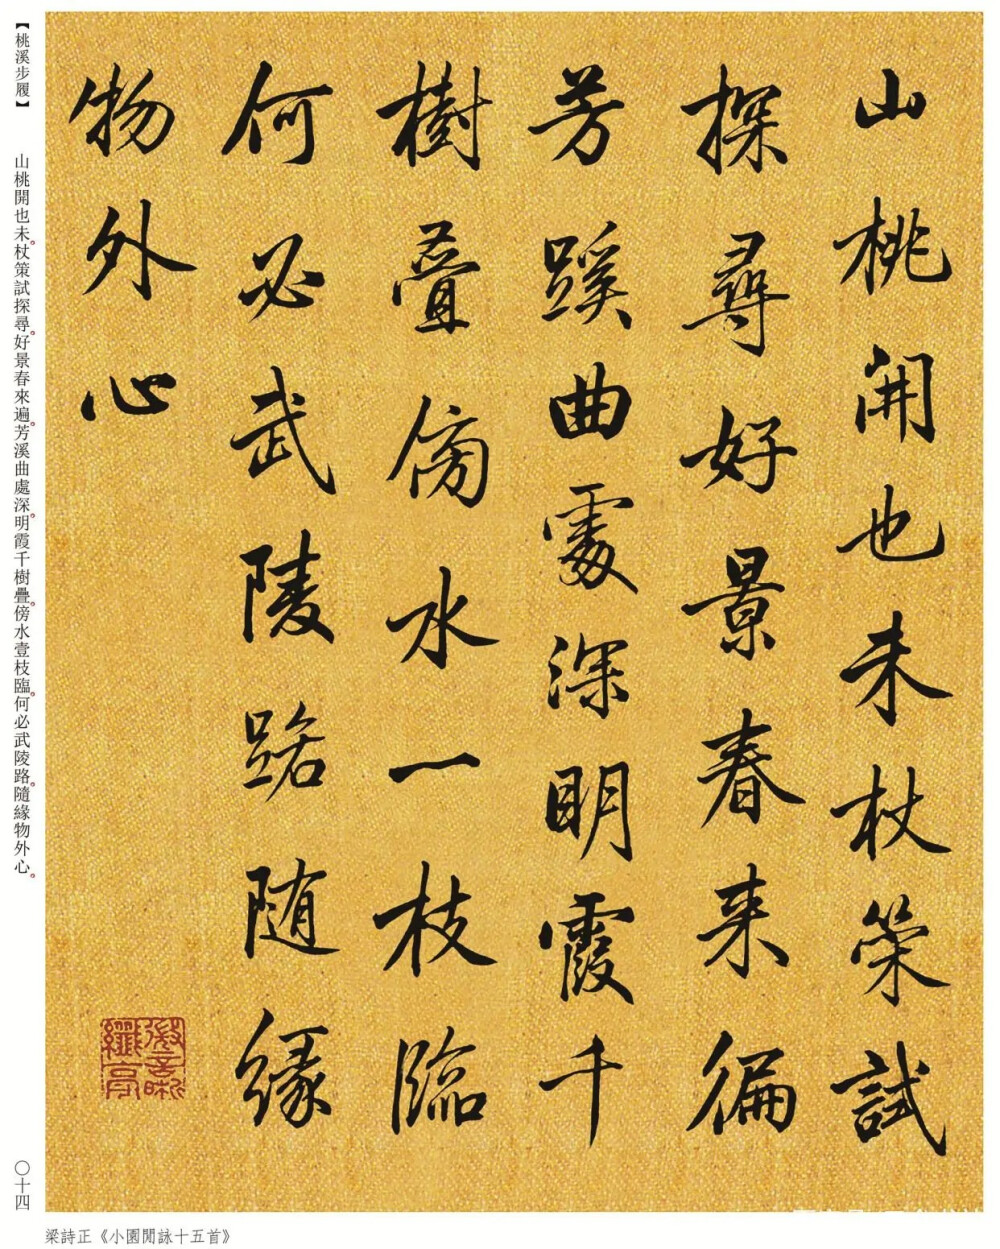 山桃開也未杖策試
探尋好景春来徧
芳蹊曲處深明霞千
樹疊傍水一枝臨
何必武陵路随緣
物外心
【桃溪步履】
山桃開也未。杖策試探尋。好景春來遍。芳溪曲處深。明霞千樹疊。傍水壹枝臨。何必武陵路。隨緣物外心。
〇十四
梁詩正《小園閒詠十五首》